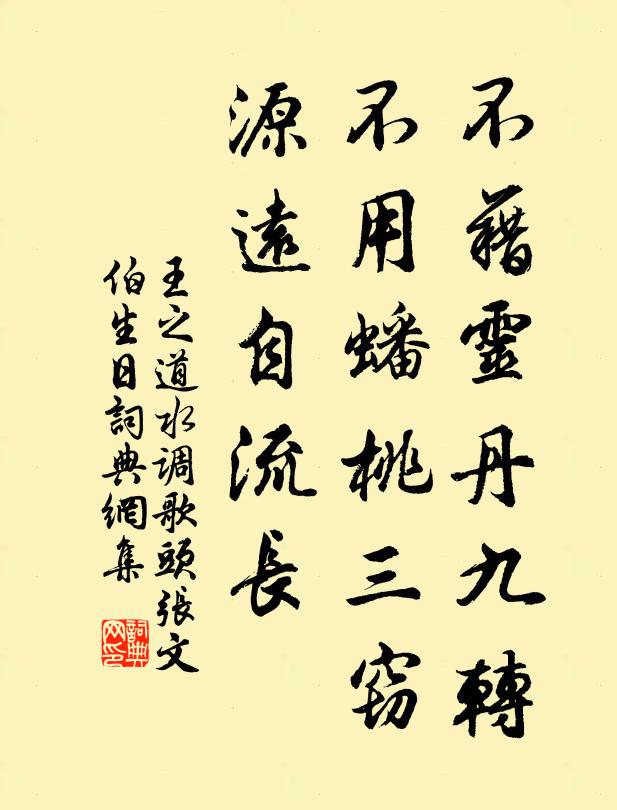 不藉靈丹九轉
不用蟠桃三窃
源遠自流長
王之道水调歌頭張文
伯生日詞典網集
詞典网印